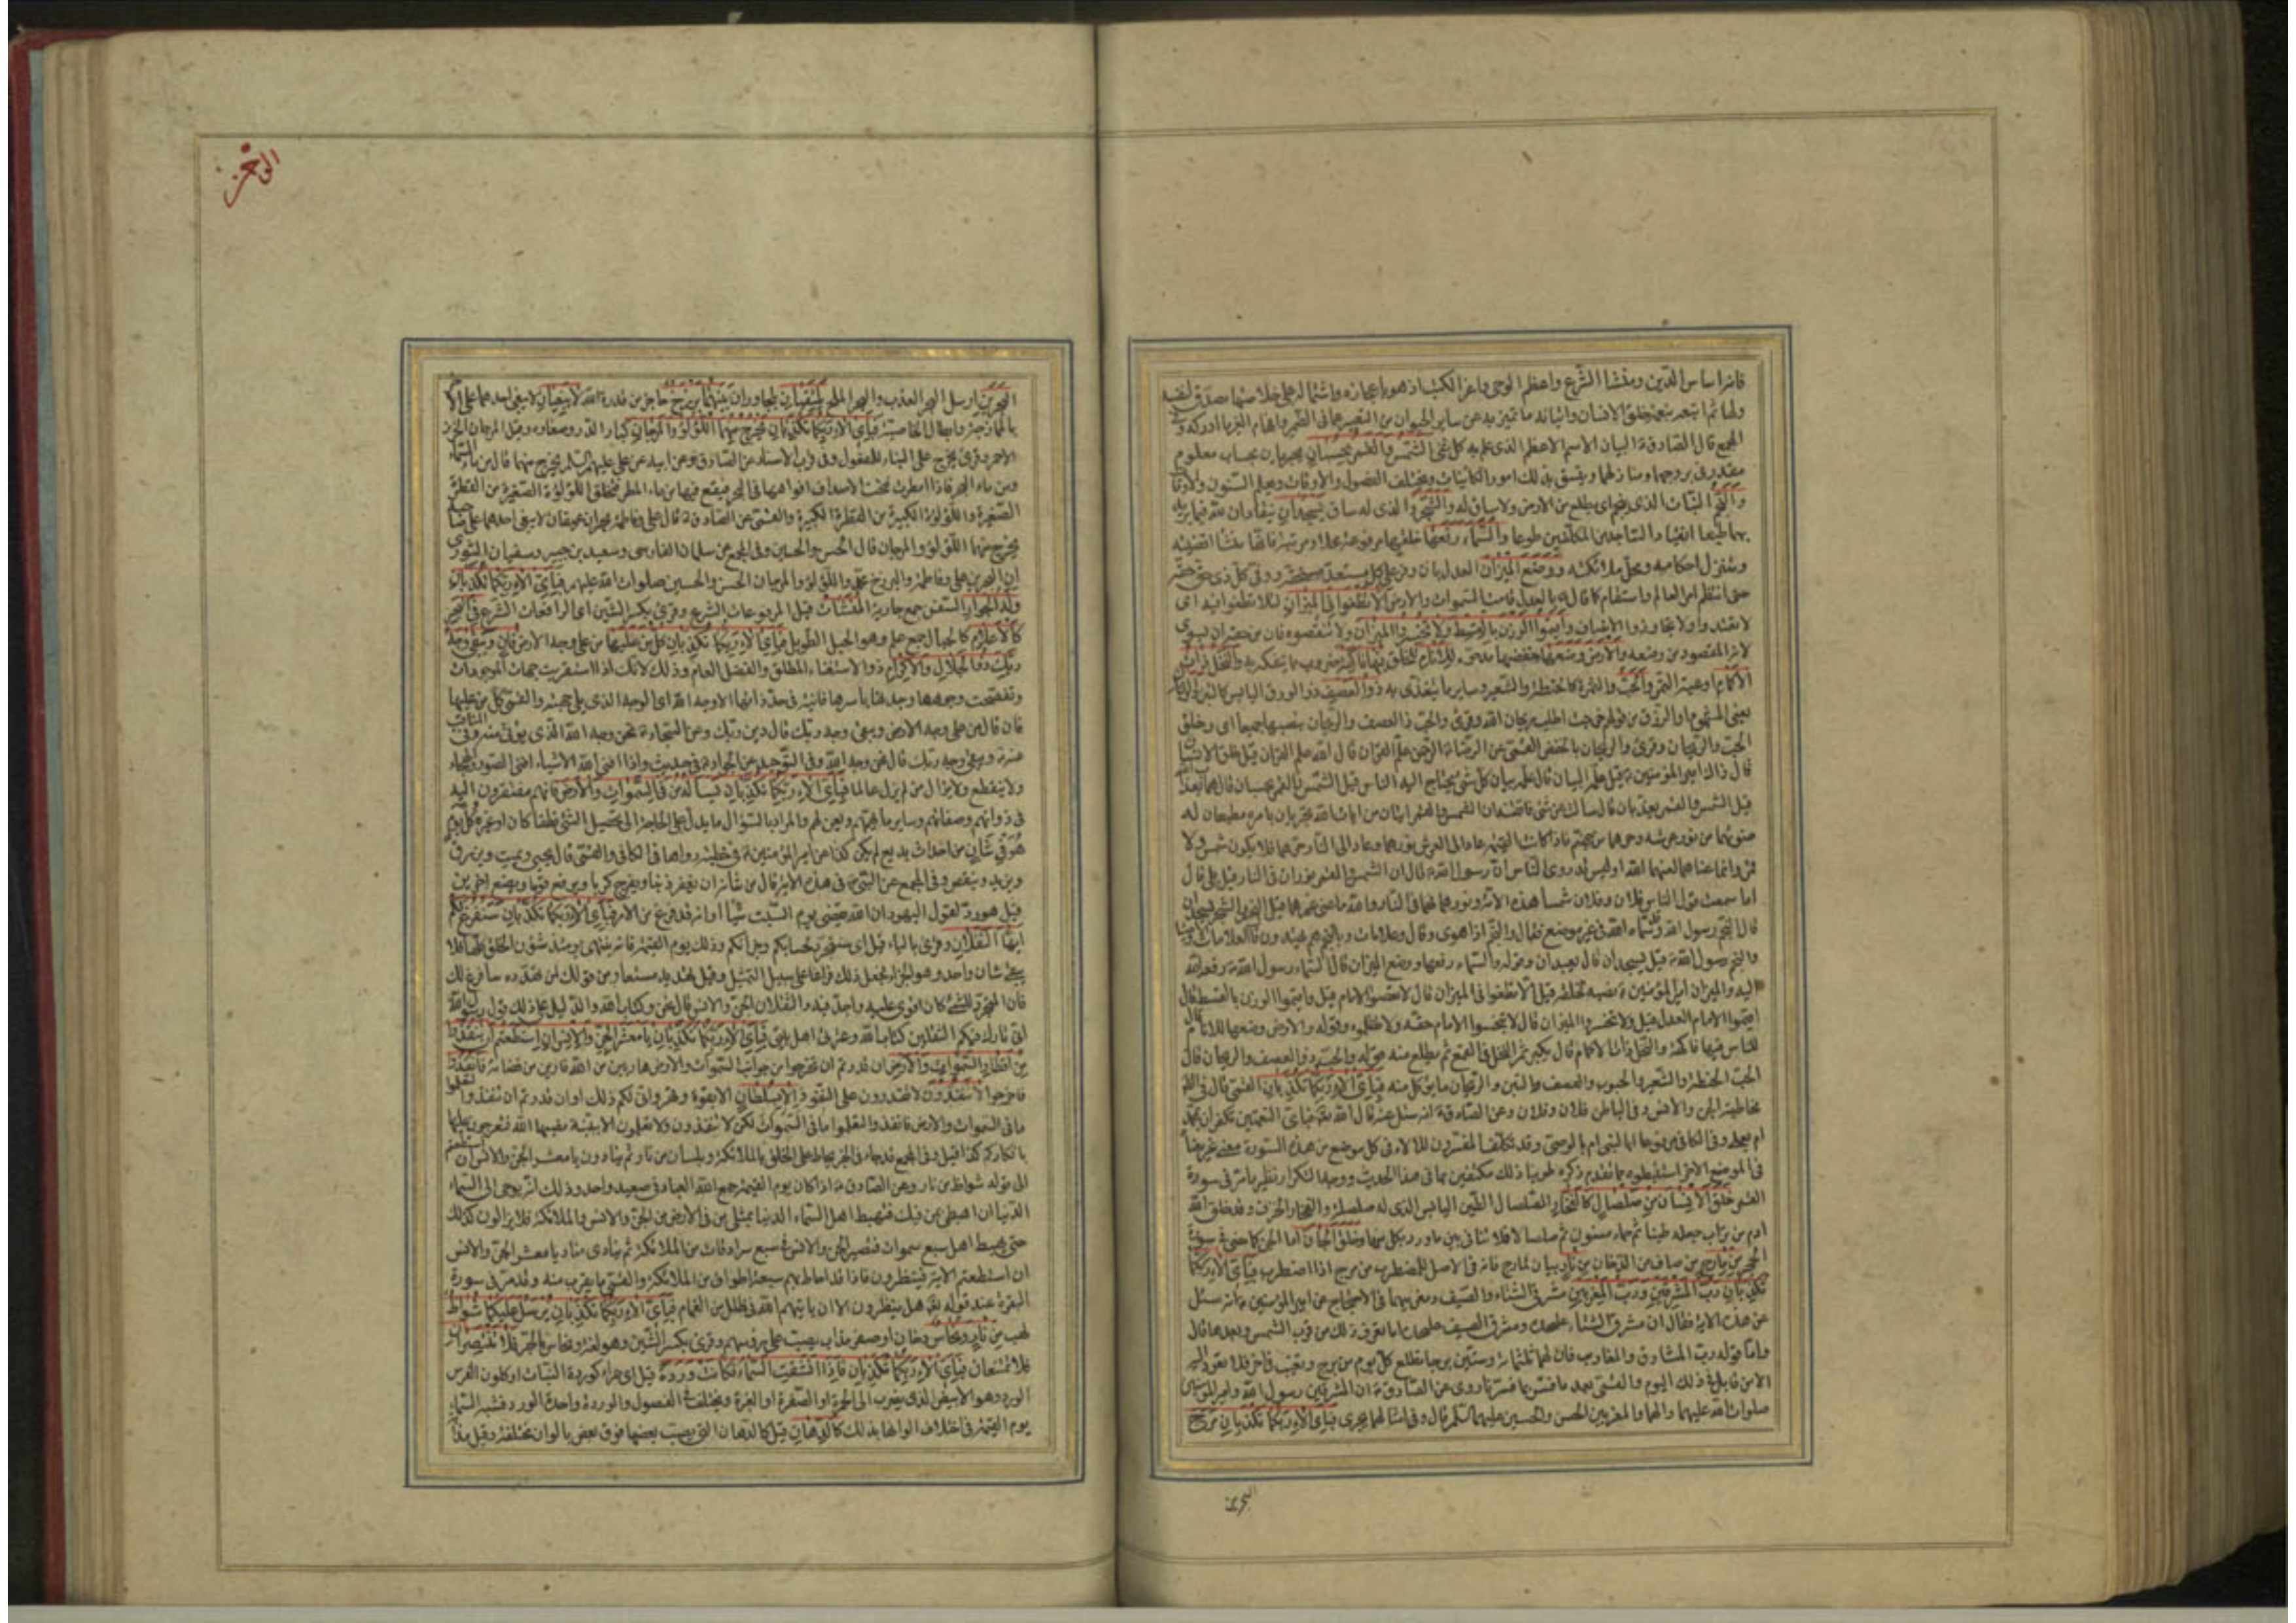 فانه اساس الدين ومنشا الشرع واعظم الوحى واعز الكتب اذ هو باعجازه واشتماله على خلاصتها مصدق لنفسه
ولها ثم اتبعه بنعمة خلق الانسان وايتائه ما تميز به عن ساير الحيوان من التعبير عما فى الضمير وافهام الغير لما ادركه وفى
المجمع قال الصادق البيان الاسم الاعظم الذى علم به كل شئ الشمس والقمر بحسبان يجريان بحساب معلوم
مقدر فى بروجهما ومنازلهما ويتسق بذلك امور الكائنات ويختلف الفصول والاوقات ويعلم السنون والاوقات
والنجم النبات الذى ينجم اى يطلع من الارض ولا ساق له والشجر والذى له ساق يسجدان ينقادان لله فيما يريد
بهما طبعا انقياد الساجدين المكلفين طوعا والسماء رفعها خلقها مرفوعة محلا ومرتبة فانها منشا اقضيته
ومتنزل احكامه ومحل ملائكته ووضع الميزان العدل بان وفر على كل مستعد مستحقه ووفى كل ذى حق حقه
حتى انتظم امر العالم واستقام كما قال بالعدل قامت السموات والارض الا تطغوا فى الميزان لئلا تطغوا فيه اى
لا تعتدوا ولا تجاوزوا الانصاف واقيموا الوزن بالقسط ولا تخسروا الميزان ولا تنقصوه فان من حقه ان يسوى
لانه المقصود من وضعه والارض وضعها خفضها مدحوة للانام للخلق فيها فاكهة ضروب مما يتفكه به والنخل ذات
الاكمام اوعية التمر والحب والثمرة كالحنطة والشعير وساير ما يتغذى به ذو العصف ذو الورق اليابس كالتبن والريحان
يعنى المشموم او الرزق من قولهم خرجت اطلب ريحان الله وقرئ والحب ذا العصف والريحان بنصبها جميعا اى وخلق
الحب والريحان وقرئ والريحان بالخفض القمى عن الرضا الرحمن علم القران قال الله علم القران قيل خلق الانسان
قال ذاك امير المؤمنين قيل علمه البيان قال علمه بيان كل شئ يحتاج اليه الناس قيل الشمس والقمر بحسبان قال هما بعذاب الله
قيل الشمس والقمر يعذبان قال سالت عن شئ فاتقنه ان الشمس والقمر ايتان من ايات الله يجريان بامره مطيعان له
ضوئهما من نور عرشه وحرهما من جهنم فاذا كانت القيمة عاد الى العرش نورهما وعاد الى النار حرهما فلا يكون شمس ولا
قمر وانما عناهما لعنهما الله اوليس قد روى الناس ان رسول الله قال ان الشمس والقمر نوران فى النار قيل بلى قال
اما سمعت قول الناس فلان وفلان شمسا هذه الامة ونورهما فهما فى النار والله ما عنى غيرهما قيل النجم والشجر يسجدان
قال النجم رسول الله وقد سماه الله فى غير موضع فقال والنجم اذا هوى وقال وعلامات وبالنجم هم يهتدون فالعلامات الاوصيا
والنجم رسول الله قيل يسجدان قال يعبدان وقوله والسماء رفعها ووضع الميزان قال السماء رسول الله رفعه الله
اليه والميزان امير المؤمنين نصبه لخلقه قيل الا تطغوا فى الميزان قال لا تعصوا الامام قيل واقيموا الوزن بالقسط قال
اقيموا الامام العدل قيل ولا تخسروا الميزان قال لا تبخسوا الامام حقه ولا تظلموه وقوله والارض وضعها للانام قال
للناس فيها فاكهة والنخل ذات الاكمام قال يكبر ثمر النخل فى القمع ثم يطلع منه قوله والحب ذو العصف والريحان قال
الحب الحنطة والشعير والحبوب والعصف والتبن والريحان ما يؤكل منه فباى الاء ربكما تكذبان القمى قال فى الظاهر
مخاطبة الجن والانس وفى الباطن فلان وفلان وعن الصادق انه سئل عنه قال الله فباى النعمتين تكفران بمحمد
ام بعلى وفى الكافى مرفوعا ابالنبى ام بالوصى وقد تكلف المفسرون للالاء فى كل موضع من هذه السورة معنى غير معناه
فى الموضع الاخر استنبطوه مما تقدم ذكره طوينا ذلك مكتفين بما فى هذا الحديث ووجه التكرار نظير ما مر فى سورة
القمر خلق الانسان من صلصال كالفخار الصلصال الطين اليابس الذى له صلصلة والفخار الخزف وقد خلق الله
ادم من تراب جعله طينا ثم حماء مسنون ثم صلصالا فلا تنافى بين ما ورد بكل منها وخلق الجان ابا الجن كما مضى فى سورة
الحجر من مارج من صاف من الدخان من نار بيان لمارج فانه فى الاصل للمضطرب من مرج اذا اضطرب فباى الاء ربكما
تكذبان رب المشرقين ورب المغربين مشرقى الشتاء والصيف ومغربيهما فى الاحتجاج عن امير المؤمنين انه سئل
عن هذه الاية فقال ان مشرق الشتاء على حده ومشرق الصيف على حده اما تعرف ذلك من قرب الشمس وبعدها قال
واما قوله رب المشارق والمغارب فان لها ثلثمائة وستين برجا تطلع كل يوم من برج وتغيب فى اخر فلا تعود اليه
الا من قابل فى ذلك اليوم والقمى بعد ما فسرها فسرنا روى عن الصادق ان المشرقين رسول الله وامير المؤمنين
صلوات الله عليهما والهما والمغربين الحسن والحسين عليهما السلم قال وفى امثالهما يجرى فباى الاء ربكما تكذبان مرج
البحرين
البحرين ارسل البحر العذب والبحر الملح يلتقيان يتجاوران بينهما برزخ حاجز من قدرة الله لا يبغيان لا يبغى احدهما على الاخر
بالممازجة وابطال الخاصية فباى الاء ربكما تكذبان يخرج منهما اللؤلؤ والمرجان كبار الدر وصغاره وقيل المرجان الخرز
الاحمر وقرئ يخرج على البناء للمفعول وفى قرب الاسناد عن الصادق عن ابيه عن على عليهم السلم يخرج منهما قال من ماء السماء
ومن ماء البحر فاذا امطرت فتحت الاصداف افواهها فى البحر فيقع فيها من ماء المطر فتخلق اللؤلؤة الصغيرة من القطرة
الصغيرة واللؤلؤة الكبيرة من القطرة الكبيرة والقمى عن الصادق قال على وفاطمة بحران عميقان لا يبغى احدهما على صاحبه
يخرج منهما اللؤلؤ والمرجان قال الحسن والحسين وفى المجمع عن سلمان الفارسى وسعيد بن جبير وسفيان الثورى
ان البحرين على وفاطمة والبرزخ محمد واللؤلؤ والمرجان الحسن والحسين صلوات الله عليهم فباى الاء ربكما تكذبان
وله الجوار السفن جمع جارية المنشات قيل المرفوعات الشرع وقرئ بكسر الشين اى الرافعات الشرع فى البحر
كالاعلام كالجبال جمع علم وهو الجبل الطويل فباى الاء ربكما تكذبان كل من عليها من على وجه الارض فان ويبقى وجه
ربك ذو الجلال والاكرام ذو الاستغناء المطلق والفضل العام وذلك لانك اذا استقريت جهات الموجودات
وتفحصت وجوهها وجدتها باسرها فانية فى حد ذاتها الا وجه الله اى الوجه الذى يلى جهته والقمى كل من عليها
فان قال من على وجه الارض ويبقى وجه ربك قال دين ربك وعن السجاد نحن وجه الله الذى يؤتى منه وفى المناقب
عنه ويبقى وجه ربك قال نحن وجه الله وفى التوحيد عن الجواد فى حديث واذا افنى الله الاشياء افنى الصور والهجاء
ولا ينقطع ولا يزال من لم يزل عالما فباى الاء ربكما تكذبان يسأله من فى السموات والارض فانهم مفتقرون اليه
فى ذواتهم وصفاتهم وساير ما يهمهم ويعن لهم والمراد بالسؤال ما يدل على الحاجة الى تحصيل الشئ نطقا كان او غيره كل يوم
هو فى شان من احداث بديع لم يكن كذا عن امير المؤمنين فى خطبة رواها فى الكافى والقمى قال يحيى ويميت ويرزق
ويزيد وينقص وفى المجمع عن النبى فى هذه الاية قال من شانه ان يغفر ذنبا ويفرج كربا ويرفع قوما ويضع اخرين
قيل هو رد لقول اليهود ان الله لا يقضى يوم السبت شيئا او انه قد فرغ من الامر فباى الاء ربكما تكذبان سنفرغ لكم
ايها الثقلان وقرئ بالياء قيل اى سنتجرد لحسابكم وجزائكم وذلك يوم القيمة فانه ينتهى يومئذ شؤن الخلق كلها فلا
يبقى شان واحد وهو الجزاء فجعل ذلك فراغا على سبيل التمثيل وقيل تهديد مستعار من قولك لمن تهدده سافرغ لك
فان المتجرد للشئ كان اقوى عليه واجد فيه والثقلان الجن والانس قال نحن وكتاب الله والدليل على ذلك قول رسول الله
انى تارك فيكم الثقلين كتاب الله وعترتى اهل بيتى فباى الاء ربكما تكذبان يا معشر الجن والانس ان استطعتم ان تنفذوا
من اقطار السموات والارض ان قدرتم ان تخرجوا من جوانب السموات والارض هاربين من الله فارين من قضائه فانفذوا
فاخرجوا لا تنفذون لا تقدرون على النفوذ الا بسلطان الا بقوة وقهر وانى لكم ذلك او ان قدرتم ان تنفذوا لتعلموا
ما فى السموات والارض فانفذوا لتعلموا ما فى السموات لكن لا تنفذون ولا تعلمون الا ببينة نصبها الله فتعرجون عليها
بافكاركم كذا قيل وفى المجمع قد جاء فى الخبر يحاط على الخلق بالملائكة وبلسان من نار ثم ينادون يا معشر الجن والانس ان استطعتم
الى قوله شواظ من نار وعن الصادق اذا كان يوم القيمة جمع الله العباد فى صعيد واحد وذلك انه يوحى الى السماء
الدنيا ان اهبطى بمن فيك فيهبط اهل السماء الدنيا بمثلى من فى الارض من الجن والانس والملائكة فلا يزالون كذلك
حتى يهبط اهل سبع سموات فتصير الجن والانس فى سبع سرادقات من الملائكة ثم ينادى مناد يا معشر الجن والانس
ان استطعتم الاية فينظرون فاذا قد احاط بهم سبعة اطواق من الملائكة والقمى ما يقرب منه وقد مر فى سورة
البقرة عند قوله هل ينظرون الا ان ياتيهم الله فى ظلل من الغمام فباى الاء ربكما تكذبان يرسل عليكما شواظ
لهب من نار ونحاس دخان او صفر مذاب يصب على رؤسهم وقرئ بكسر الشين وهو لغة ونحاس بالجر فلا تنتصران
فلا تمتنعان فباى الاء ربكما تكذبان فاذا انشقت السماء فكانت وردة قيل اى حمراء كوردة النبات او كلون الفرس
الورد وهو الابيض الذى يضرب الى الحمرة او الصفرة او الغبرة ويختلف فى الفصول والوردة واحدة الورد فشبه السماء
يوم القيمة فى اختلاف الوانها بذلك كالدهان قيل كالدهان التى يصب بعضها فوق بعض بالوان مختلفة وقيل مذابة